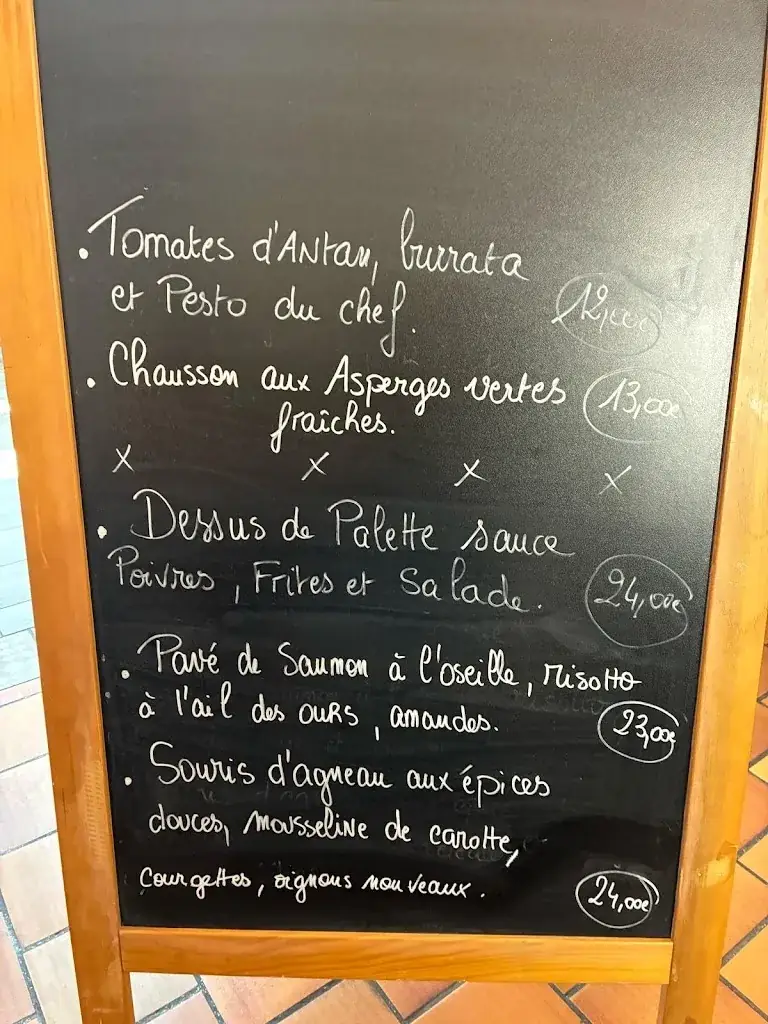 . Tomates d'Antan, burrata
et Pesto du chef. 12,00€
. Chausson aux Asperges vertes 13,00€
fraîches.
x x x x
. Dessus de Palette sauce
Poivres, Frites et Salade. 24,00€
. Pavé de Saumon à l'oseille, risotto
à l'ail des ours, amandes. 23,00€
. Souris d'agneau aux épices
douces, mousseline de carotte,
courgettes, oignons nouveaux. 24,00€